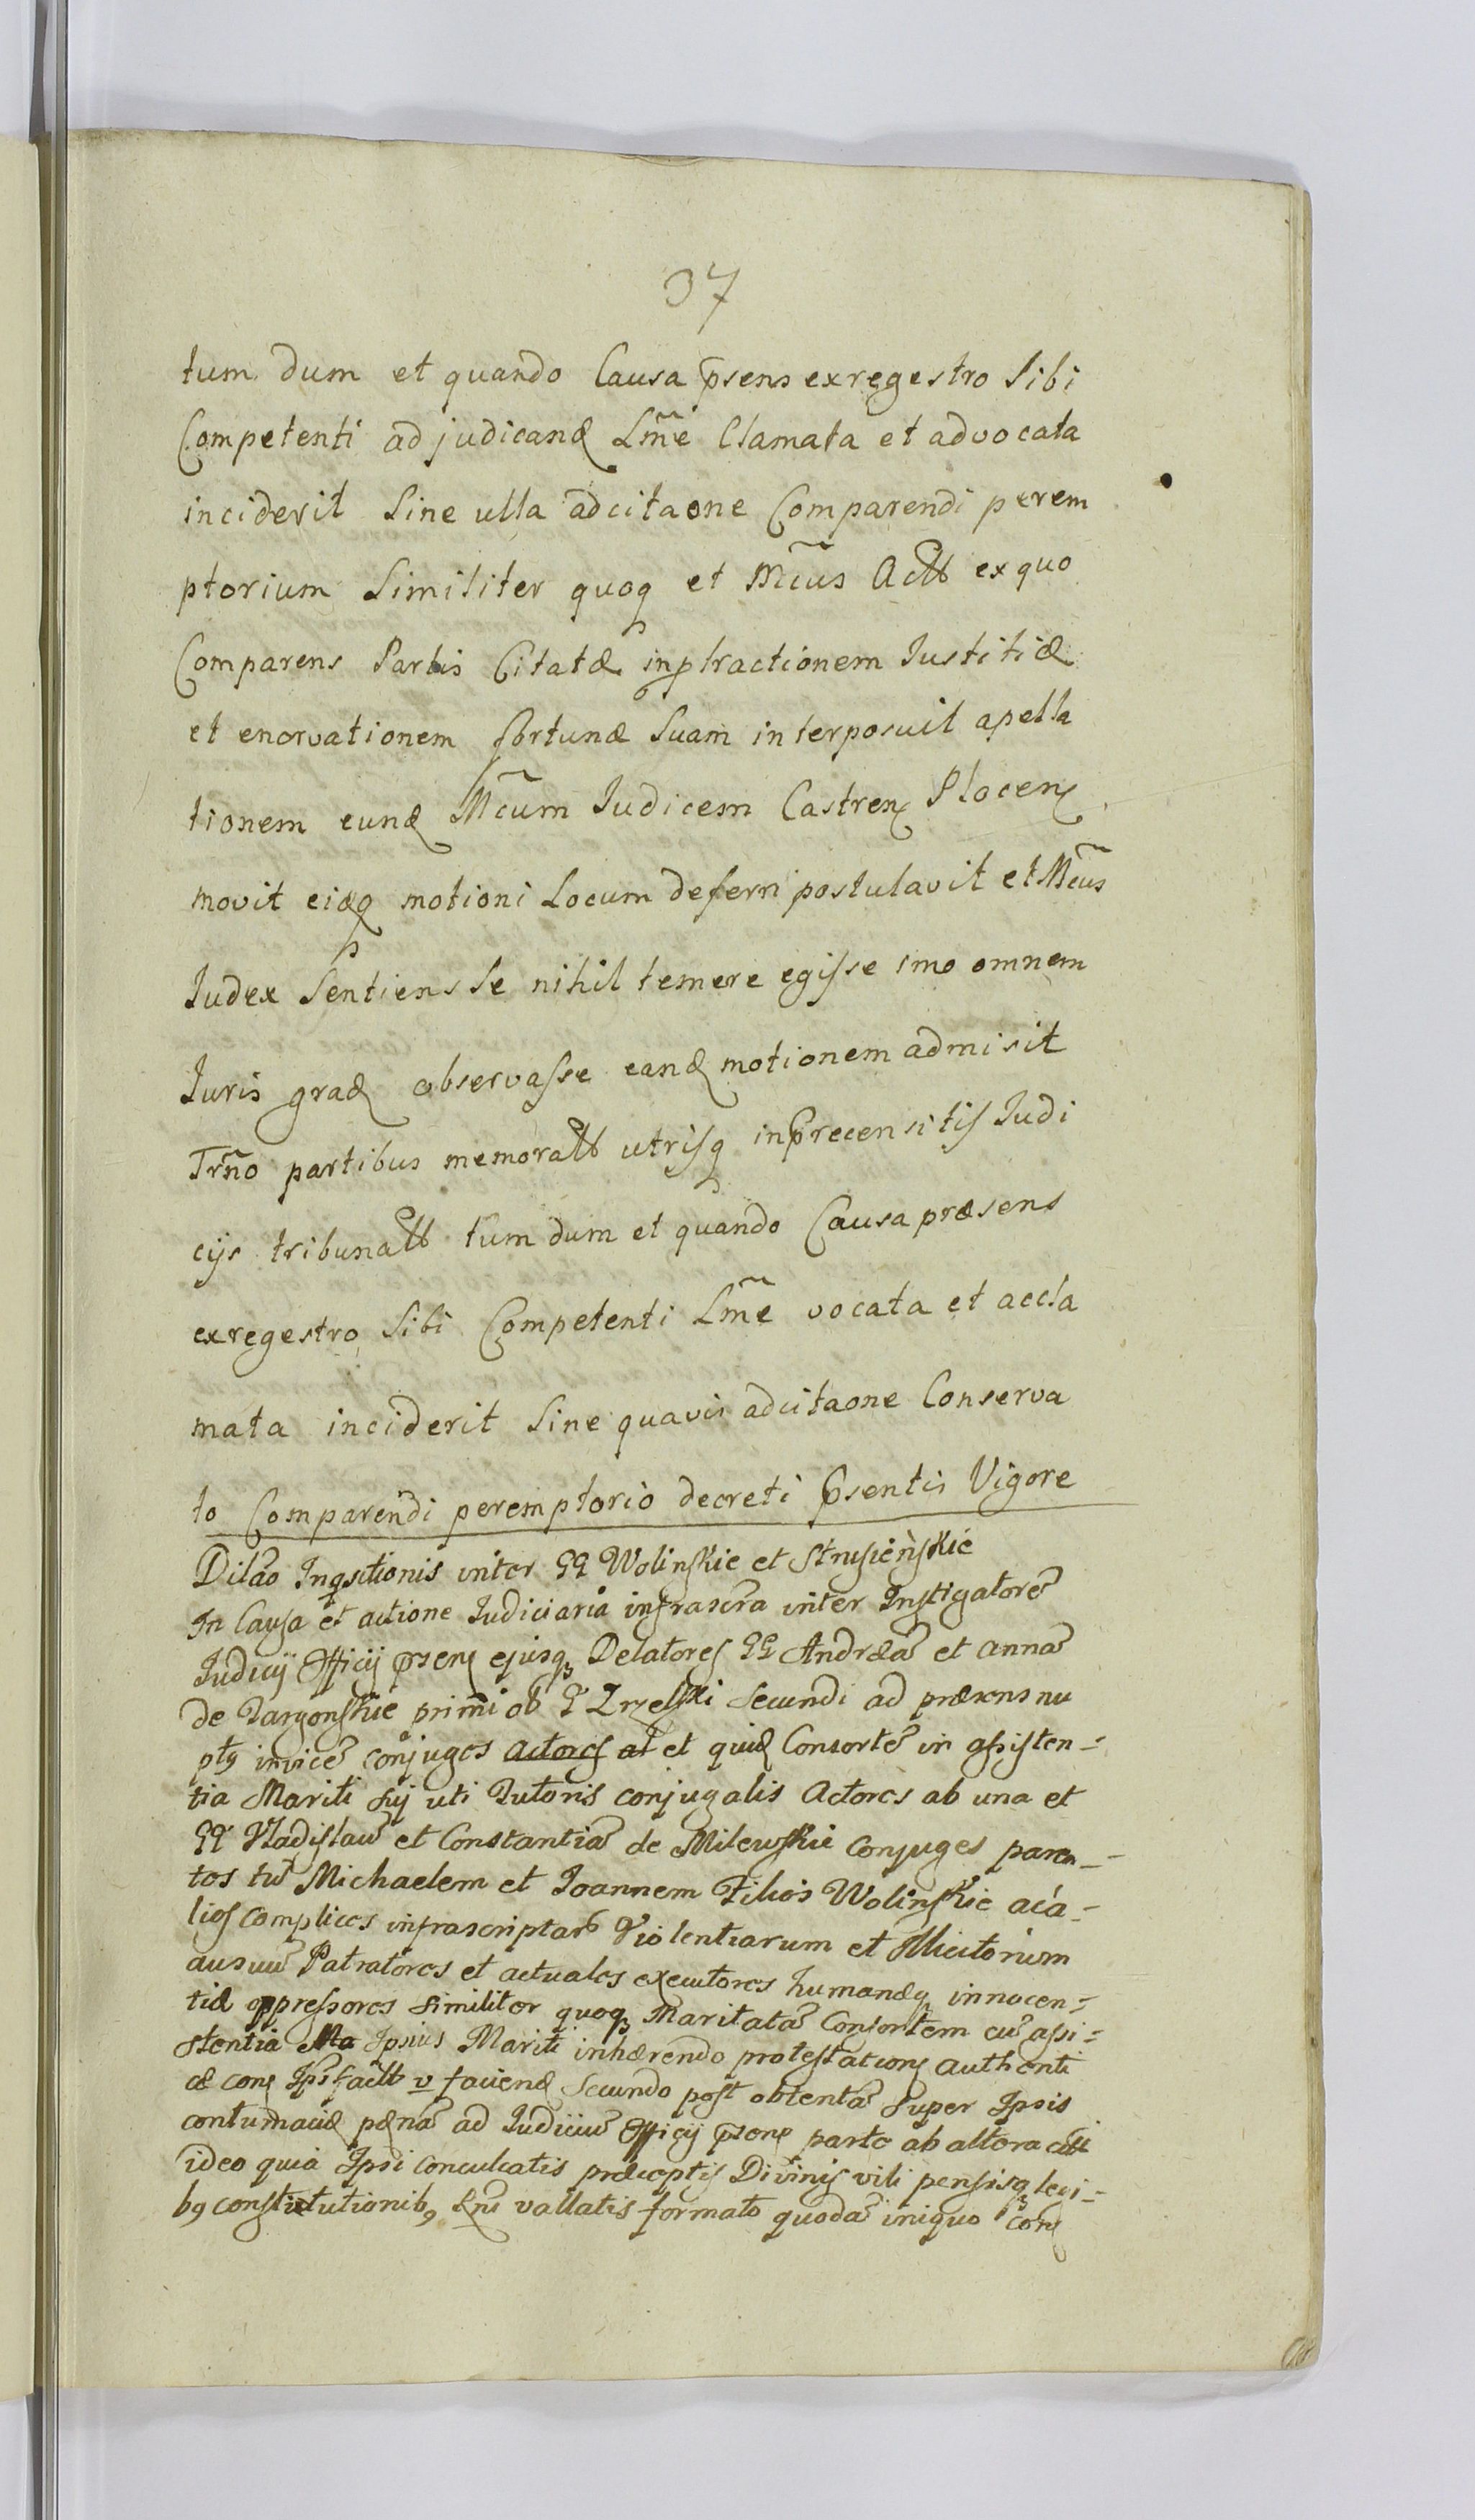 37
tum dum et quando Causa p̄sens ex regestro Sibi
Competenti ad judicand Lm̃e Clamata et advocata
inciderit Sine ulla adcitaone Comparendi perem
ptorium Similiter quoq et Mcus̃ Actt ex quo
Comparens Partis Citatæ in ptractionem Iustitiæ
et enervationem fortunæ Suam interposuit apella
tionem eund Mcũm Iudicem Castren Plocen
movit eidq motioni Locum deferri postulavit et Mcũs
Iudex Sentiens Se nihil temere egisse imo omnem
Iuris grad observasse eand motionem admisit
Trño partibus memoratt utrisq in p̄recensitis Iudi
cijs tribunatt tum dum et quando Causa præsens
ex regestro Sibi Competenti Lm̃e vocata et accla
mata inciderit Sine quavis adcitaone Conserva
to Comparendi peremptorio decreti p̄sentis Vigore
Dilão Inqsitionis inter GG Wolinskie et Strusieńskie
In Causa et actione Iudiciaria infrascra inter Instigatorẽ
Iudicij Officij p̄sens ejusq Delatores GG Andræã et Annã
de Targonskie primi ol G Zrzelski Secundi ad præsens nu
ptꝫ invicẽ conjuges Actores at et quid Consortẽ in assisten=
tia Mariti sui uti Tutoris conjugalis Actores ab una et
GG Vladislaũ et Constantiã de Milewskie Conjuges paren=
tes tũ Michaelem et Joannem Filios Wolinskie ac a=
lios complices infrascriptar Violentiarum et Illicitorum
ausuũ Patratores et actuales executores humanæq innocen=
tiæ oppressores similiter quoq Maritatã Consortem cũ assi=
stentia Ma Ipsius Mariti inhærendo protestations authenti
cæ Ipŝ factt v faciend Secundo post obtentã super Ipsis
contumaciæ pænã ad Iudiciũ Officij p̄sens parte ab altera citt
ideo quia Ipsi conculcatis præceptis Divinis vili pensisq legi=
bꝫ constitutionibꝫ Rñi vallatis formato quodã iniquo cons